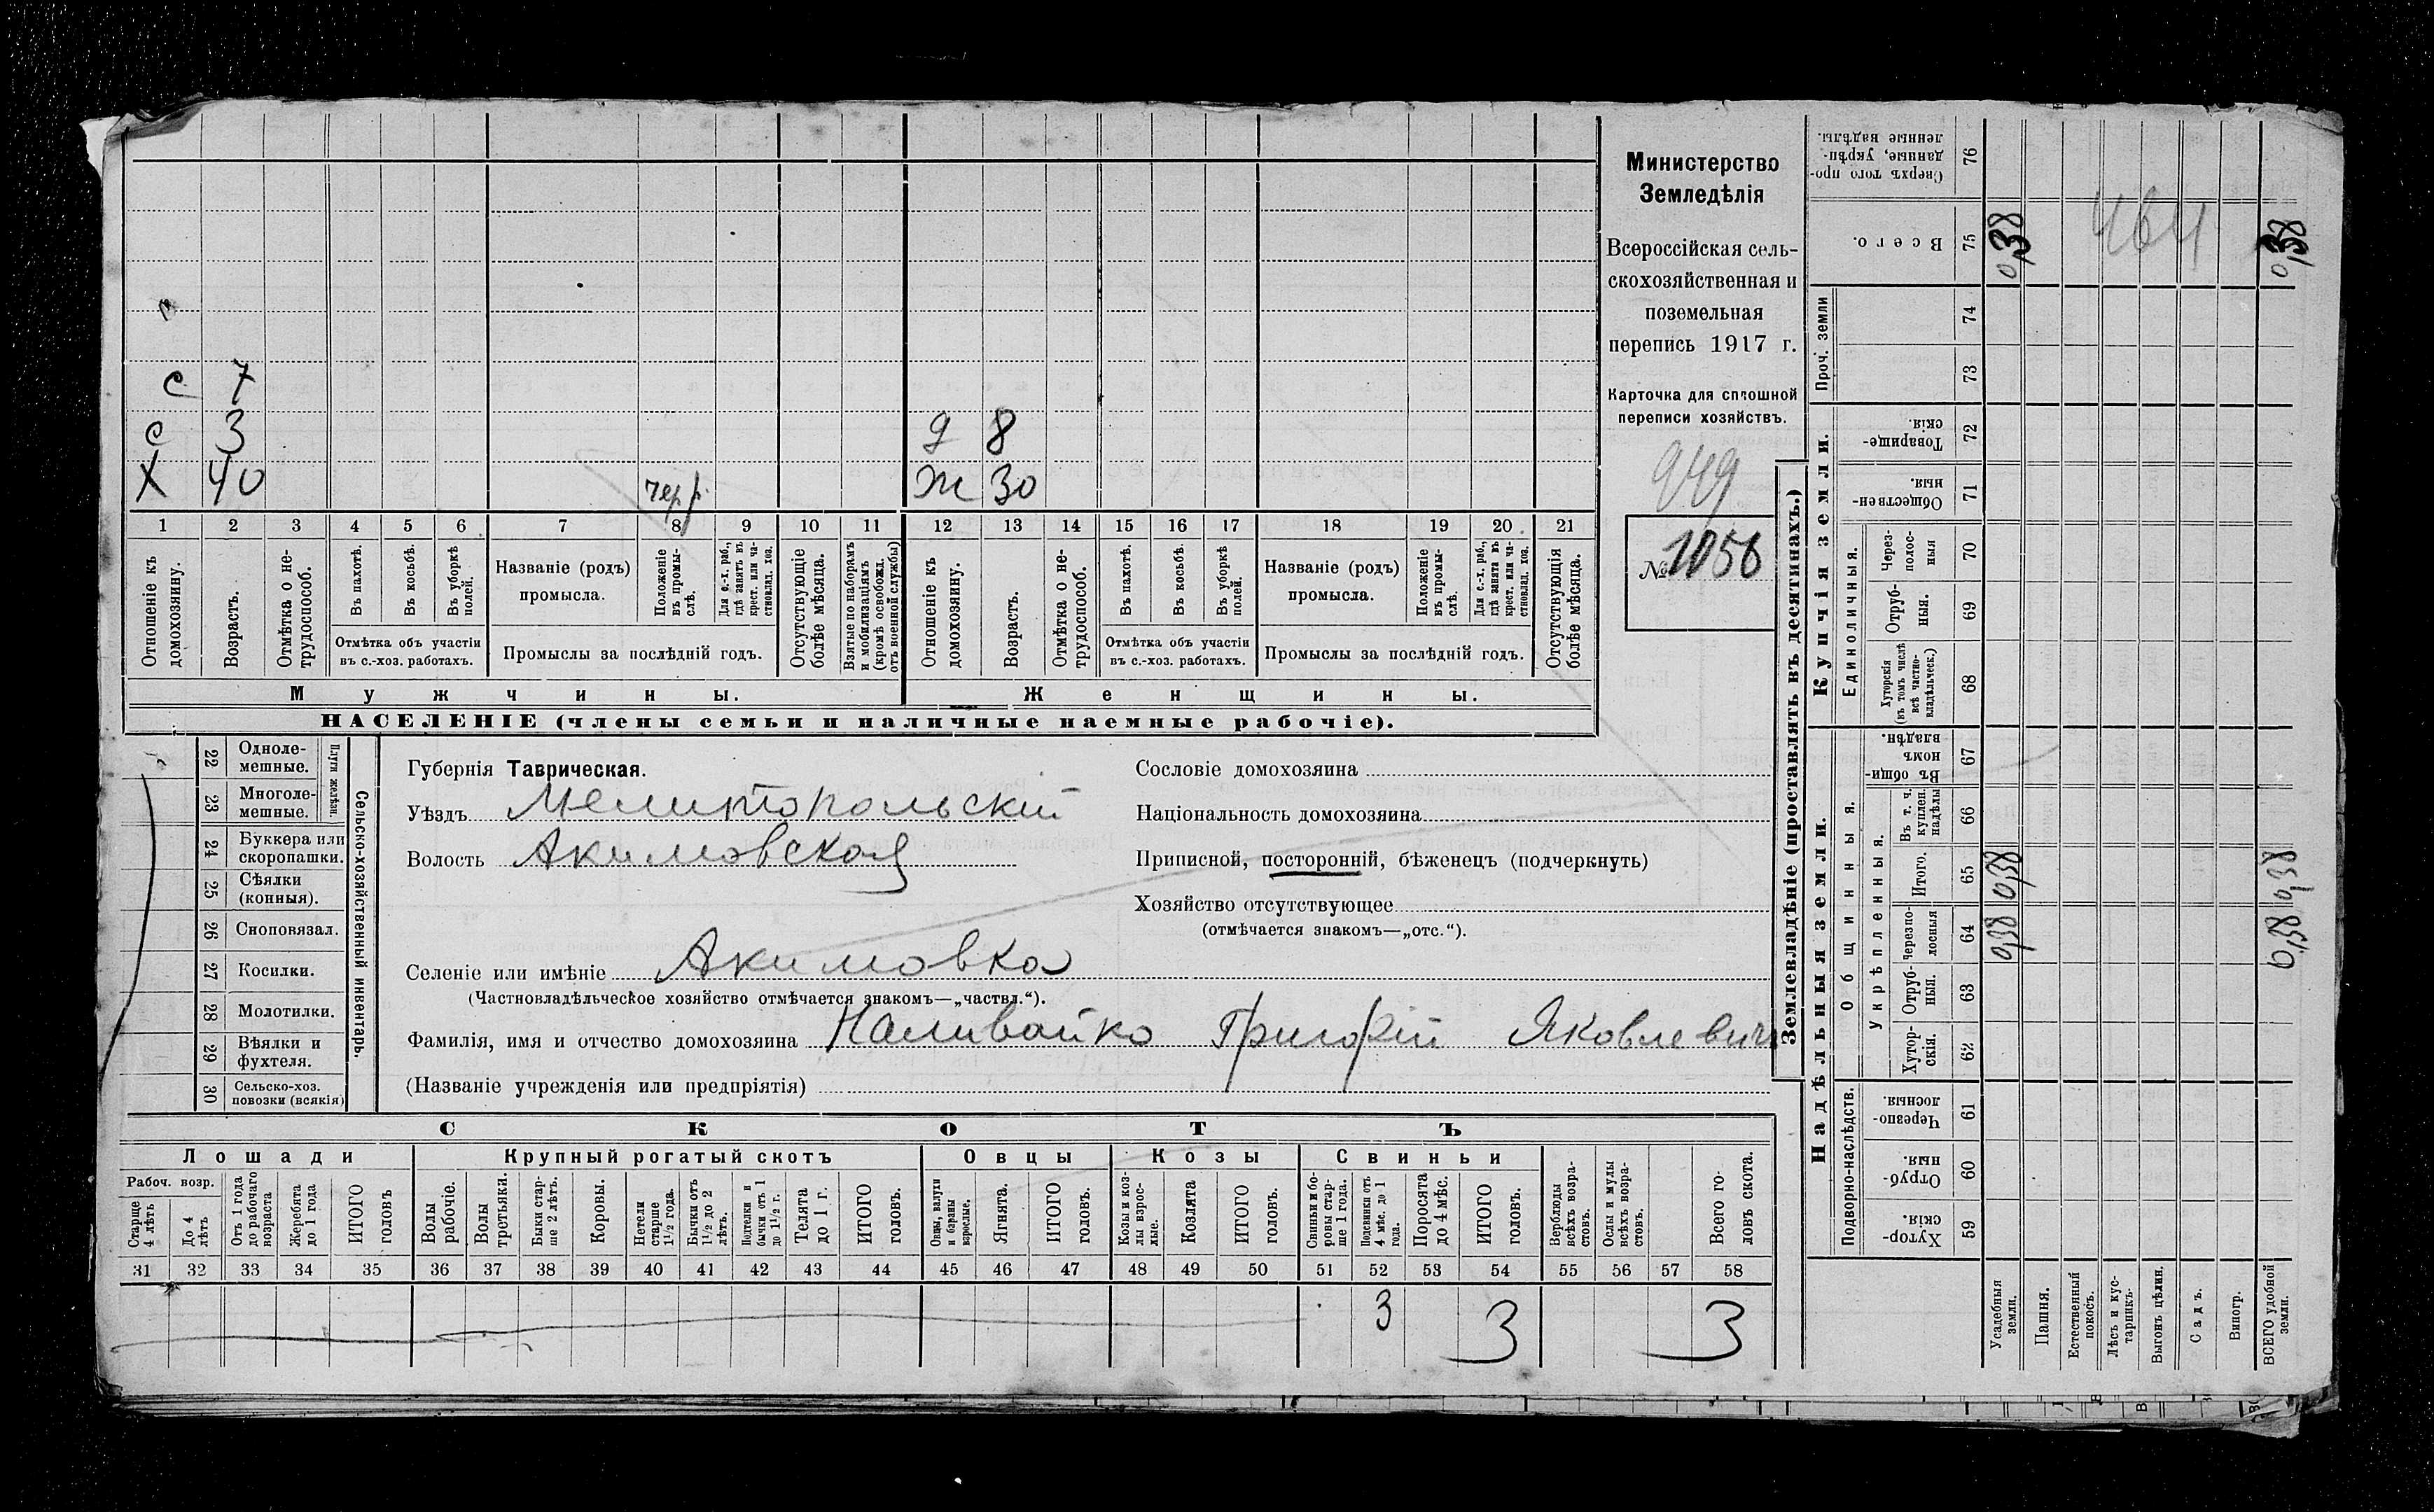 с 7
с 3 д 8
Х 40 чер. р. ж 30
1 2 3 4 5 6 7 8 9 10 11 12 13 14 15 16 17 18 19 20 21
Отношеніе къ домохозяину.
Возрастъ.
Отмѣтка о не-трудоспособ.
Въ пахотѣ.
Въ косьбѣ.
Въ уборкѣ полей.
Отмѣтка объ участіи
въ с.-хоз. работахъ.
Названіе (родъ)
промысла.
Положеніе въ промы-слѣ.
Для с.-х. раб., гдѣ занятъ въ крест. или ча-стновлад. хоз.
Промыслы за послѣдній годъ.
Отсутствующіе болѣе мѣсяца.
Взятые по наборамъ и мобилизаціямъ (кромѣ освобожд. отъ военной службы)
Отношеніе къ домохозяину.
Возрастъ.
Отмѣтка о не-трудоспособ.
Въ пахотѣ.
Въ косьбѣ.
Въ уборкѣ полей.
Отмѣтка объ участіи
въ с.-хоз. работахъ.
Названіе (родъ)
промысла.
Положеніе въ промы-слѣ.
Для с.-х. раб., гдѣ занята въ крест. или ча-стновлад. хоз.
Промыслы за послѣдній годъ.
Отсутствующія болѣе мѣсяца.
Мужчины. Женщины.
НАСЕЛЕНІЕ (члены семьи и наличные наемные рабочіе).
Министерство
Земледѣлія
Всероссійская сель-
скохозяйственная и
поземельная
перепись 1917 г.
Карточка для сплошной
переписи хозяйствъ.
949
№ 1056
Сельско-хозяйственный инвентарь.
Плуги желѣзн.
22 Одноле-мешные.
23 Многоле-мешные.
24 Буккера или скоропашки.
25 Сѣялки (конныя).
26 Сноповязал.
27 Косилки.
28 Молотилки.
29 Вѣялки и фухтеля.
30 Сельско-хоз. повозки (всякія)
Губернія Таврическая.
Уѣздъ Мелитопольскій
Волость Акимовская
Сословіе домохозяина
Національность домохозяина
Приписной, посторонній, бѣженецъ (подчеркнуть)
Хозяйство отсутствующее
(отмѣчается знакомъ—„отс.“).
Селеніе или имѣніе Акимовка
(Частновладѣльческое хозяйство отмѣчается знакомъ—„частвл.“).
Фамилія, имя и отчество домохозяина Наливайко Григорій Яковлевичъ
(Названіе учрежденія или предпріятія)
СКОТЪ
Лошади Крупный рогатый скотъ Овцы Козы Свиньи
Рабоч. возр.
Старше 4 лѣтъ
До 4 лѣтъ
Отъ 1 года до рабочаго возраста
Жеребята до 1 года
ИТОГО головъ
Волы рабочіе.
Волы третьяки.
Быки стар-ше 2 лѣтъ.
Коровы.
Нетели старше 1½ года.
Бычки отъ 1½ до 2 лѣтъ.
Подтелки и бычки отъ 1 до 1½ г.
Телята до 1 г.
ИТОГО головъ.
Овцы, валухи и бараны взрослые.
Ягнята.
ИТОГО головъ.
Козы и коз-лы взрос-лые.
Козлята
ИТОГО головъ.
Свиньи и бо-ровы стар-ше 1 года.
Подсвинки отъ 4 мѣс. до 1 года.
Поросята до 4 мѣс.
ИТОГО головъ.
Верблюды всѣхъ возра-стовъ.
Ослы и мулы всѣхъ возра-стовъ.
Всего го-ловъ скота.
31 32 33 34 35 36 37 38 39 40 41 42 43 44 45 46 47 48 49 50 51 52 53 54 55 56 57 58
3 3 3
Землевладѣніе (проставлять въ десятинахъ.)
Надѣльныя земли. Купчія земли. Проч. земли
Подворно-наслѣдств. Общинныя. Единоличныя.
Укрѣпленныя.
Хутор-скія. 59
Отруб-ныя. 60
Черезпо-лосныя. 61
Хутор-скія. 62
Отруб-ныя. 63
Черезпо-лосныя 64
Итого. 65
Въ т. ч. куплен. надѣлы 66
Въ общин-номъ владѣн. 67
Хуторскія (въ томъ числѣ всѣ частно-владѣльческ.) 68
Отруб-ныя. 69
Через-полос-ныя 70
Обществен-ныя. 71
Товарище-скія. 72
73
74
Всего. 75
Сверхъ того про-данные, укрѣп-ленные надѣлы. 76
Усадебныя земли. 0,38 0,38 0,38
Пашня.
Естественный покосъ.
Лѣсъ и кус-тарникъ.
Выгонъ цѣлин.
Садъ.
Виногр.
ВСЕГО удобной земли. 0,38 0,38 0,38
464